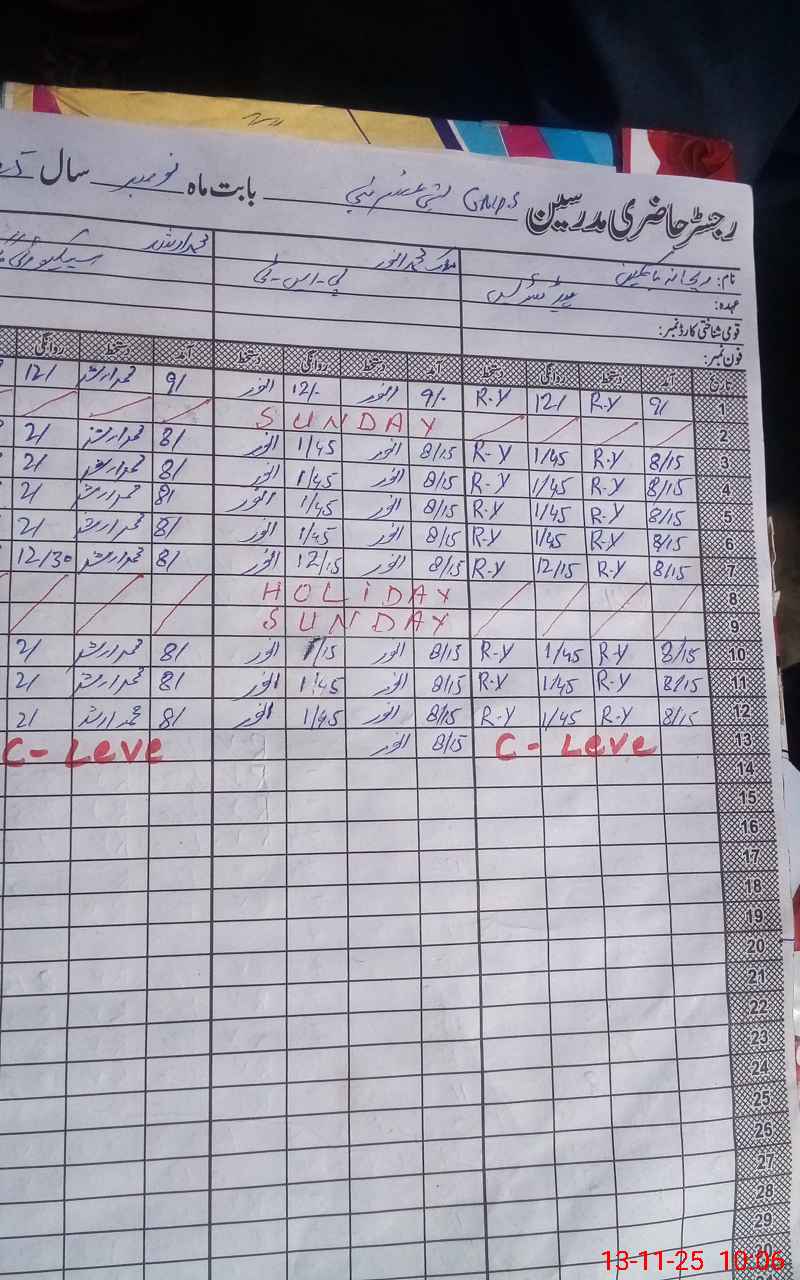 رجسٹر حاضری مدرسین GMPS بابت ماہ نومبر سال
نام: ریحانہ یاسمین ملک محمد انور محمد ارشد
عہدہ: ہیڈ مسٹرس پی-ایس-ٹی
قومی شناختی کارڈ نمبر:
فون نمبر:
تاریخ آمد دستخط روانگی دستخط آمد دستخط روانگی دستخط آمد دستخط روانگی
1 9/ R.Y 12/ R.Y 9/. انور 12/. انور 9/ محمد ارشد 12/
2 SUNDAY
3 8/15 R.Y 1/45 R-Y 8/15 انور 1/45 انور 8/ محمد ارشد 2/
4 8/15 R.Y 1/45 R-Y 8/15 انور 1/45 انور 8/ محمد ارشد 2/
5 8/15 R.Y 1/45 R.Y 8/15 انور 1/45 انور 8/ محمد ارشد 2/
6 8/15 R.Y 1/45 R.Y 8/15 انور 1/45 انور 8/ محمد ارشد 2/
7 8/15 R.Y 12/15 R.Y 8/15 انور 12/15 انور 8/ محمد ارشد 12/30
8 HOLiDAY
9 SUNDAY
10 8/15 R.Y 1/45 R-Y 8/15 انور /15 انور 8/ محمد ارشد 2/
11 8/15 R.Y 1/45 R-Y 8/15 انور 1/45 انور 8/ محمد ارشد 2/
12 8/15 R.Y 1/45 R.Y 8/15 انور 1/45 انور 8/ محمد ارشد 2/
13 C- Leve 8/15 انور C- Leve
14
15
16
17
18
19
20
21
22
23
24
25
26
27
28
29
30
13-11-25 10:06